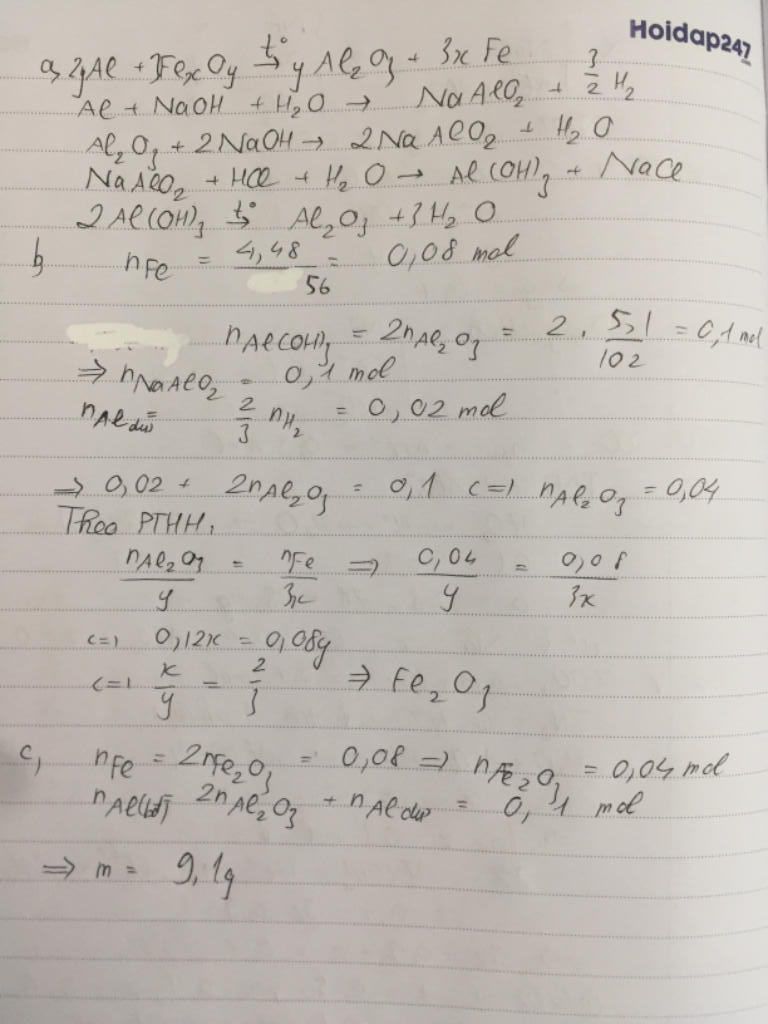 Hoidap247
.com
a, 2yAl + 3FexOy t°→ y Al2O3 + 3x Fe
Al + NaOH + H2O → NaAlO2 + 3/2 H2
Al2O3 + 2NaOH → 2NaAlO2 + H2O
NaAlO2 + HCl + H2O → Al(OH)3 + NaCl
2Al(OH)3 t°→ Al2O3 + 3H2O
b, nFe = 4,48/56 = 0,08 mol
nAl(OH)3 = 2nAl2O3 = 2 . 5,1/102 = 0,1 mol
⇒ nNaAlO2 = 0,1 mol
nAl dư = 2/3 nH2 = 0,02 mol
⇒ 0,02 + 2nAl2O3 = 0,1 <=> nAl2O3 = 0,04
Theo PTHH,
nAl2O3/y = nFe/3x ⇒ 0,04/y = 0,08/3x
<=> 0,12x = 0,08y
<=> x/y = 2/3 ⇒ Fe2O3
c, nFe = 2nFe2O3 = 0,08 ⇒ nFe2O3 = 0,04 mol
nAl(bđ) = 2nAl2O3 + nAl dư = 0,1 mol
⇒ m = 9,1g